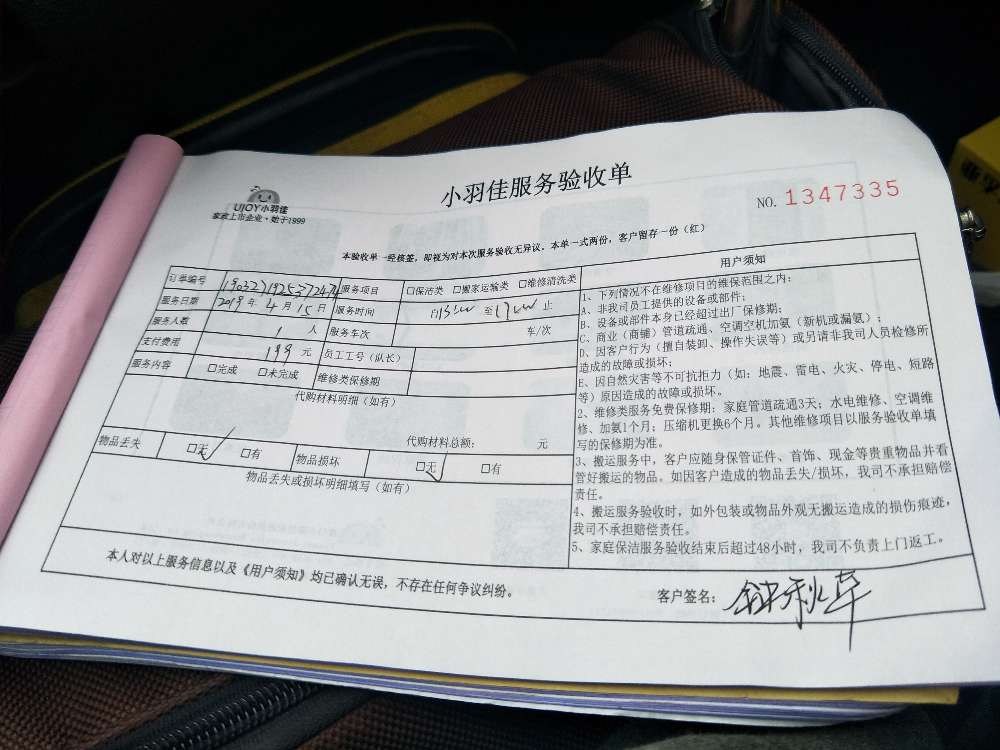 UJOY小羽佳
家政上市企业·始于1999
小羽佳服务验收单
NO. 1347335
本验收单一经核签，即视为对本次服务验收无异议。本单一式两份，客户留存一份（红）
订单编号
服务项目 □保洁类 □搬家运输类 □维修清洗类
服务日期 2019年4月15日 服务时间 自 至 止
服务人数 1 人 服务车次 车/次
支付费用 199 元 员工工号（队长）
服务内容 □完成 □未完成 维修类保修期
代购材料明细（如有）
代购材料总额： 元
物品丢失 □无 □有 物品损坏 □无 □有
物品丢失或损坏明细填写（如有）
用户须知
1、下列情况不在维修项目的维保范围之内：
A、非我司员工提供的设备或部件；
B、设备或部件本身已经超过出厂保修期；
C、商业（商铺）管道疏通、空调空机加氨（新机或漏氨）；
D、因客户行为（擅自装卸、操作失误等）或另请非我司人员检修所
造成的故障或损坏；
E、因自然灾害等不可抗拒力（如：地震、雷电、火灾、停电、短路
等）原因造成的故障或损坏。
2、维修类服务免费保修期：家庭管道疏通3天；水电维修、空调维
修、加氨1个月；压缩机更换6个月。其他维修项目以服务验收单填
写的保修期为准。
3、搬运服务中，客户应随身保管证件、首饰、现金等贵重物品并看
管好搬运的物品。如因客户造成的物品丢失/损坏，我司不承担赔偿
责任。
4、搬运服务验收时，如外包装或物品外观无搬运造成的损伤痕迹，
我司不承担赔偿责任。
5、家庭保洁服务验收结束后超过48小时，我司不负责上门返工。
本人对以上服务信息以及《用户须知》均已确认无误，不存在任何争议纠纷。
客户签名：钟秋草